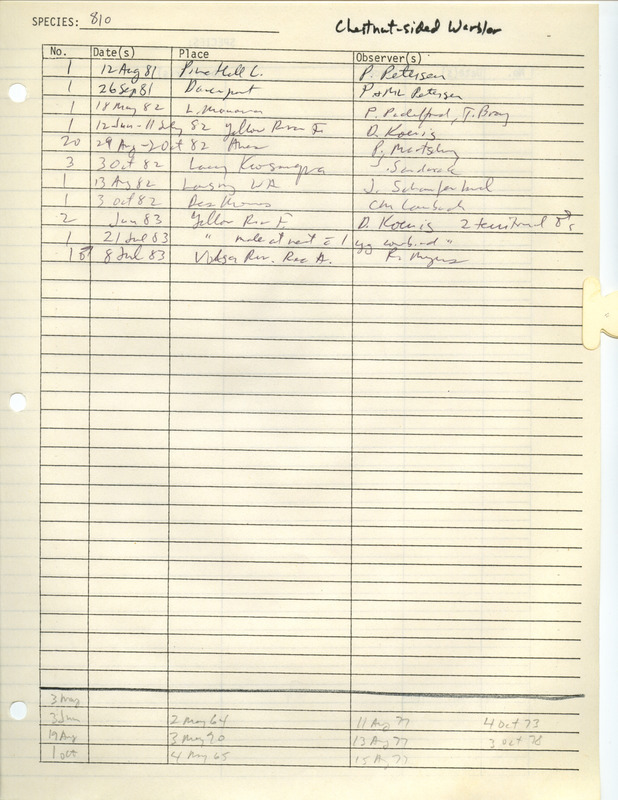 SPECIES: 810 Chestnut-sided Warbler
No. Date(s) Place Observer(s)
1 12 Aug 81 Pine Hill C. P. Petersen
1 26 Sep 81 Davenport P & ML Petersen
1 18 May 82 L. Manawa P. Padelford, T. Bray
1 12 Jun-11 July 82 Yellow River F. D. Koenig
20 29 Aug-2 Oct 82 Ames P. Martsching
3 3 Oct 82
1 13 Aug 82 Lansing WA J. Schaufenbuel
1 3 Oct 82 Des Moines
2 Jun 83 Yellow River F. D. Koenig 2 territorial ♂s
1 21 Jul 83 " male at nest 1 egg "
1 ♂ 8 Jul 83 Rec A. R. Myers
3 May
3 Jun 2 May 64 11 Aug 77 4 Oct 73
19 Aug 3 May 70 13 Aug 77 3 Oct 78
1 Oct 4 May 65 15 Aug 77